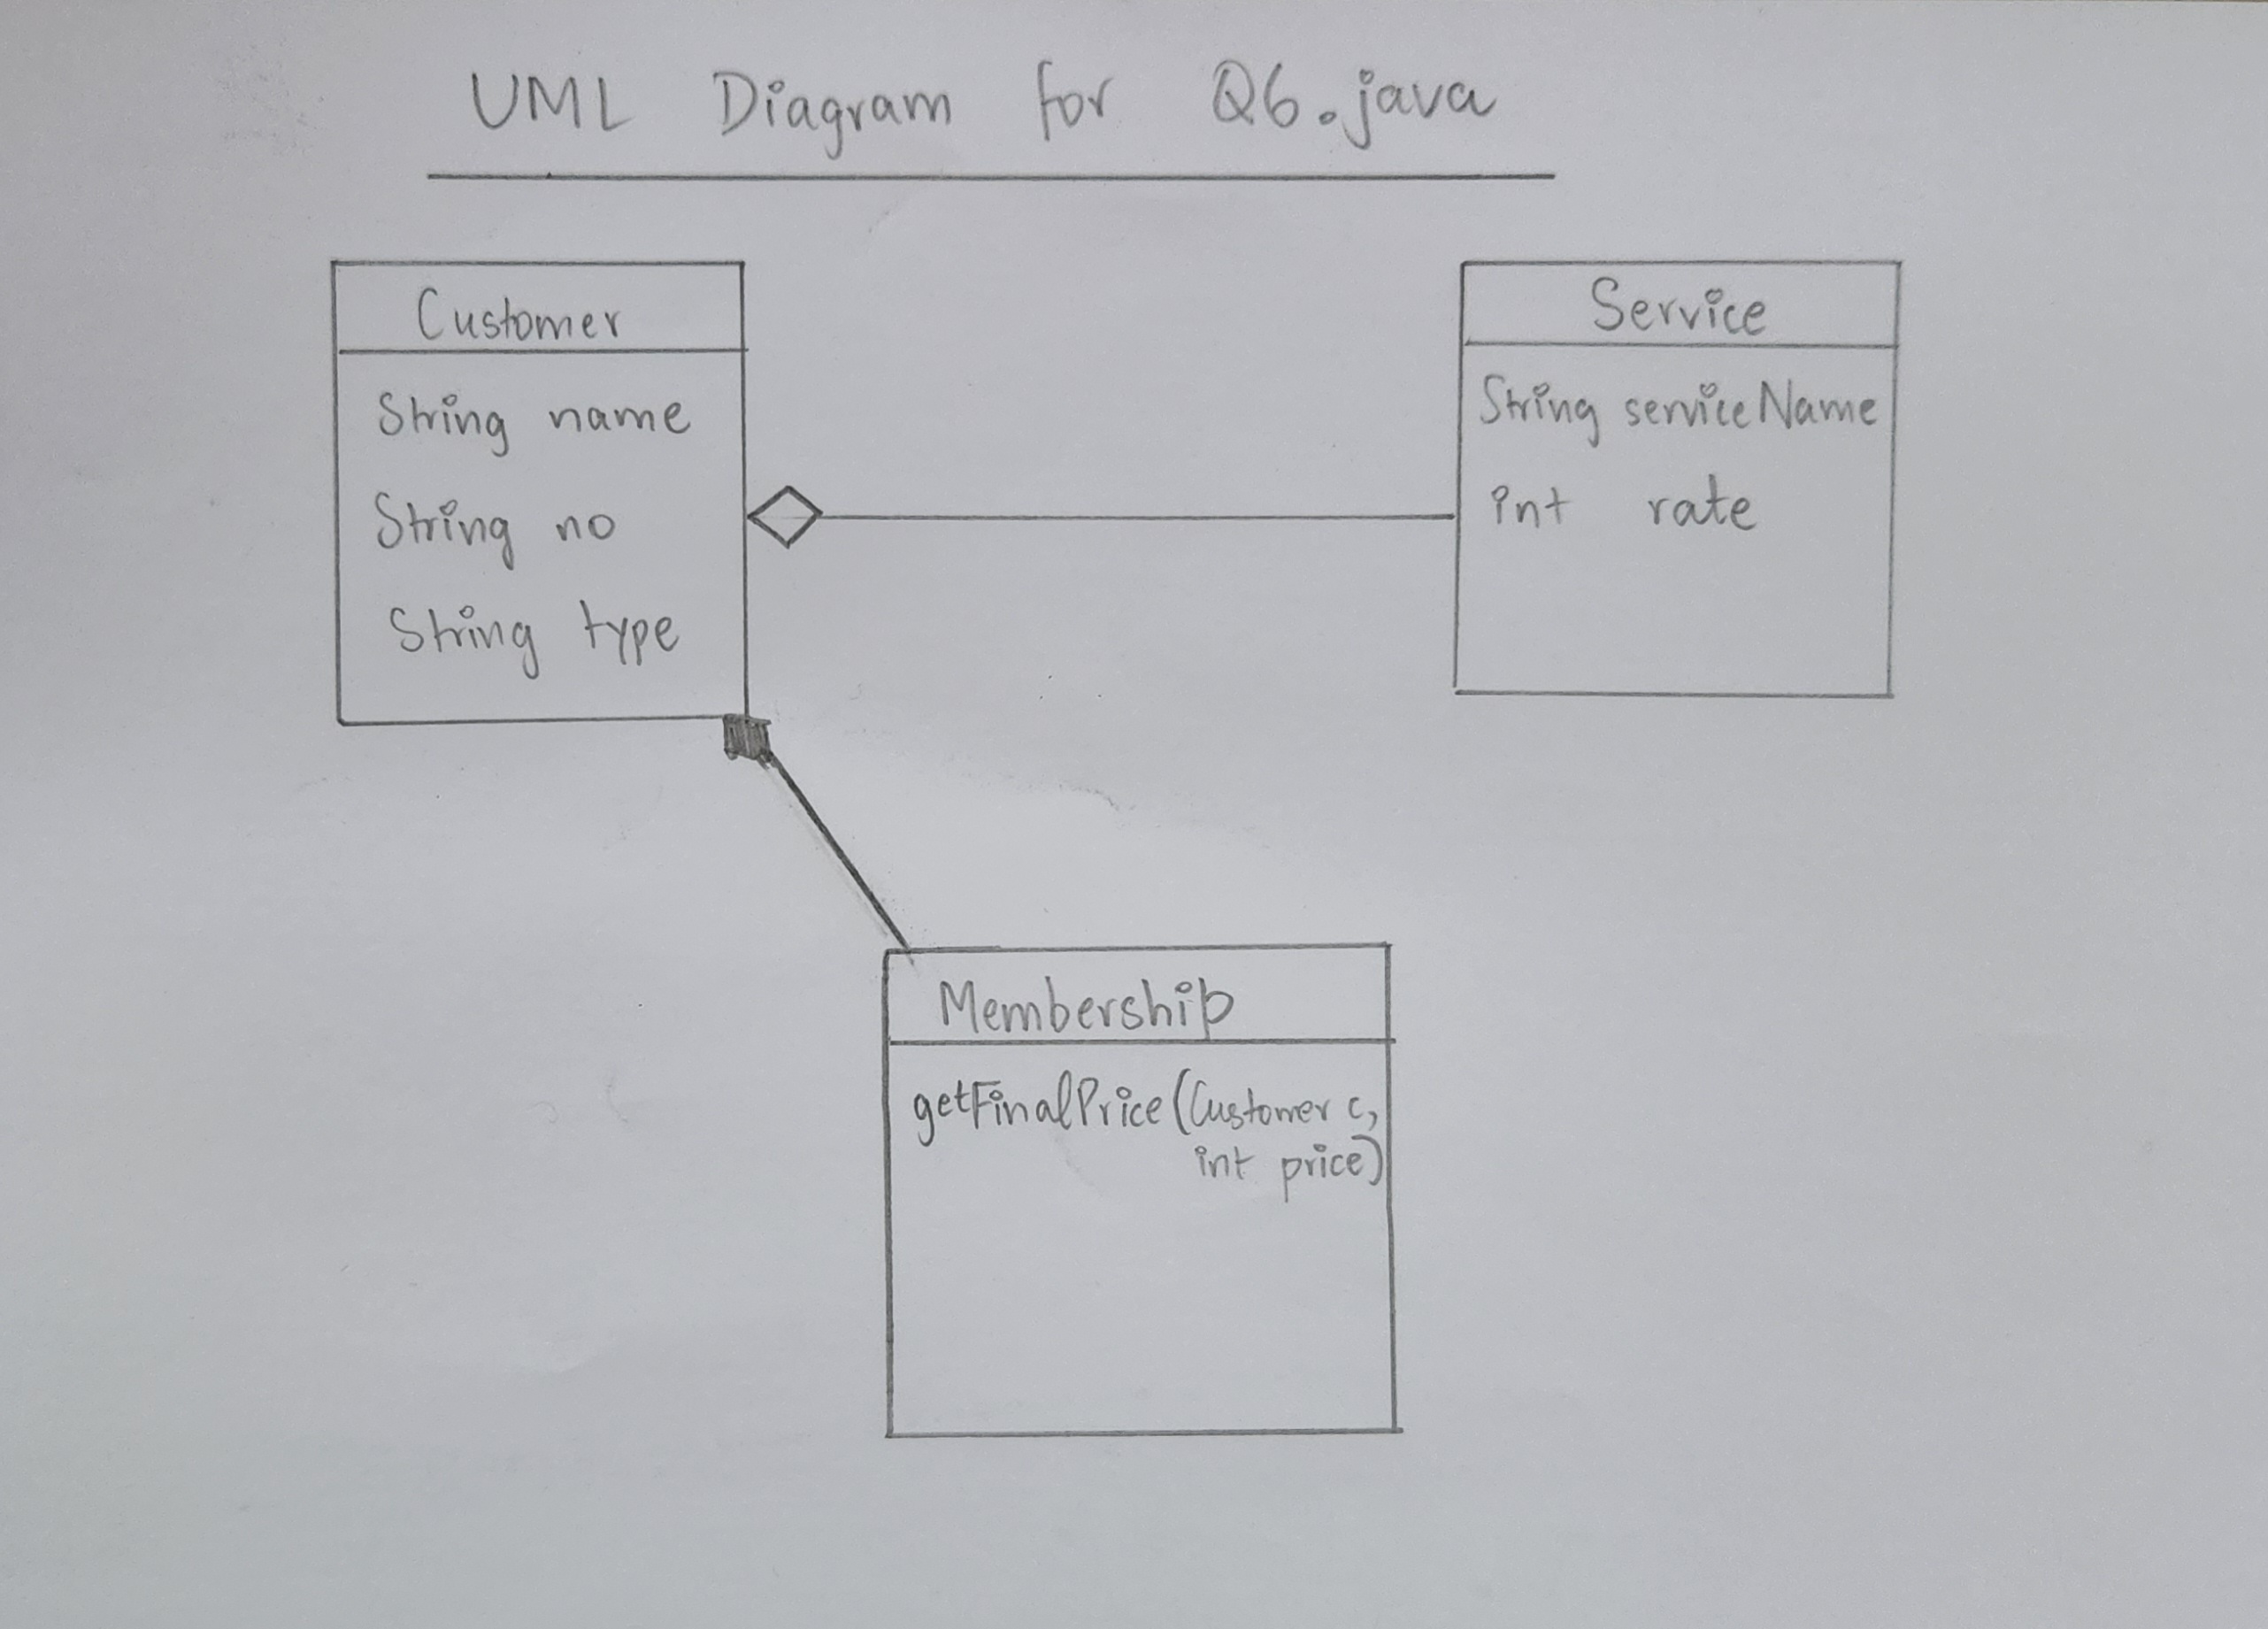 UML Diagram for Q6.java
Customer
String name
String no
String type
Service
String serviceName
int rate
Membership
getFinalPrice(Customer c,
int price)